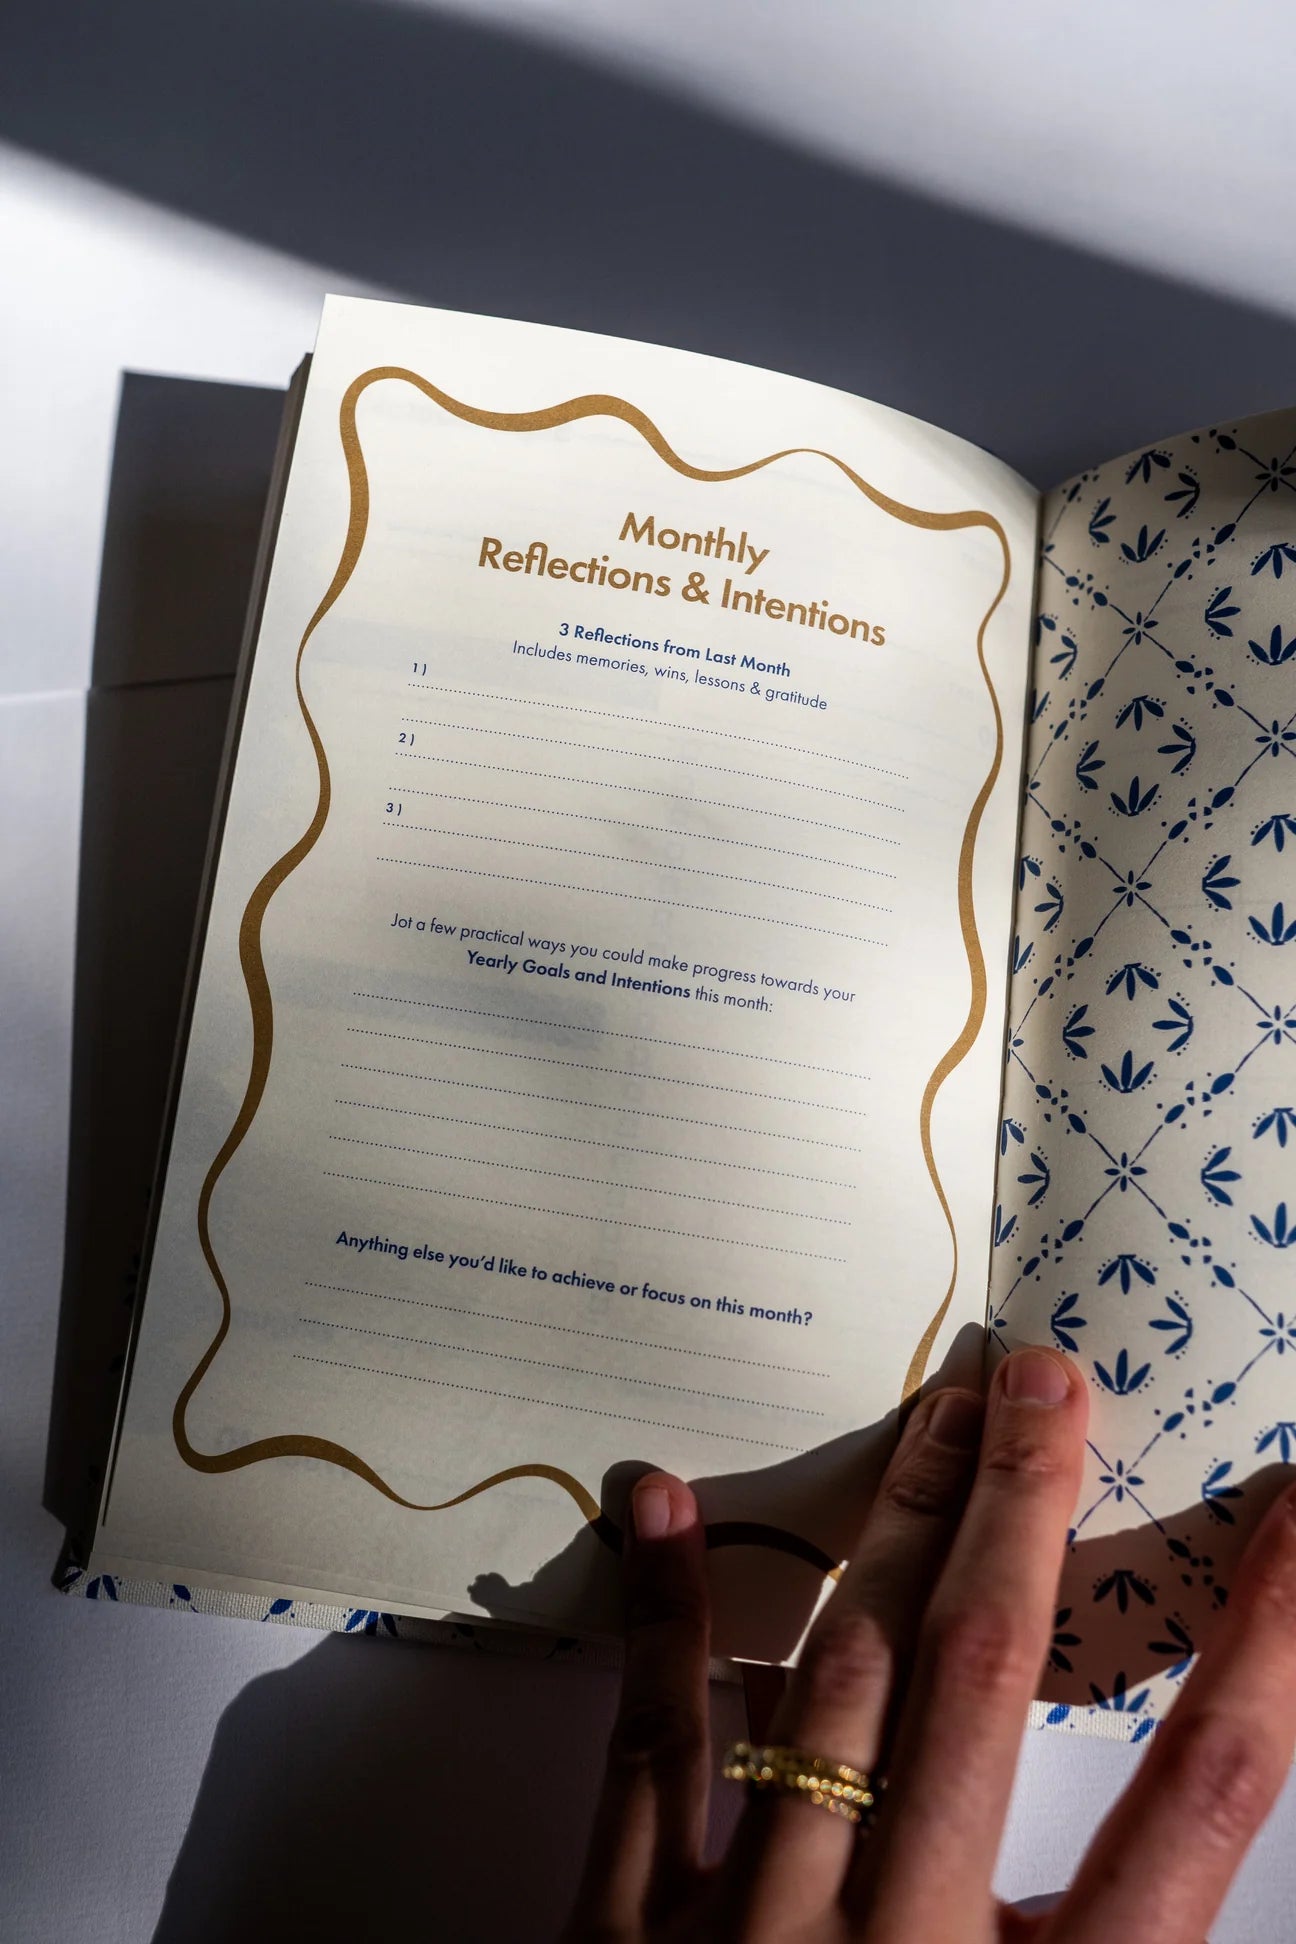 Monthly
Reflections & Intentions
3 Reflections from Last Month
Includes memories, wins, lessons & gratitude
1)
2)
3)
Jot a few practical ways you could make progress towards your
Yearly Goals and Intentions this month:
Anything else you'd like to achieve or focus on this month?